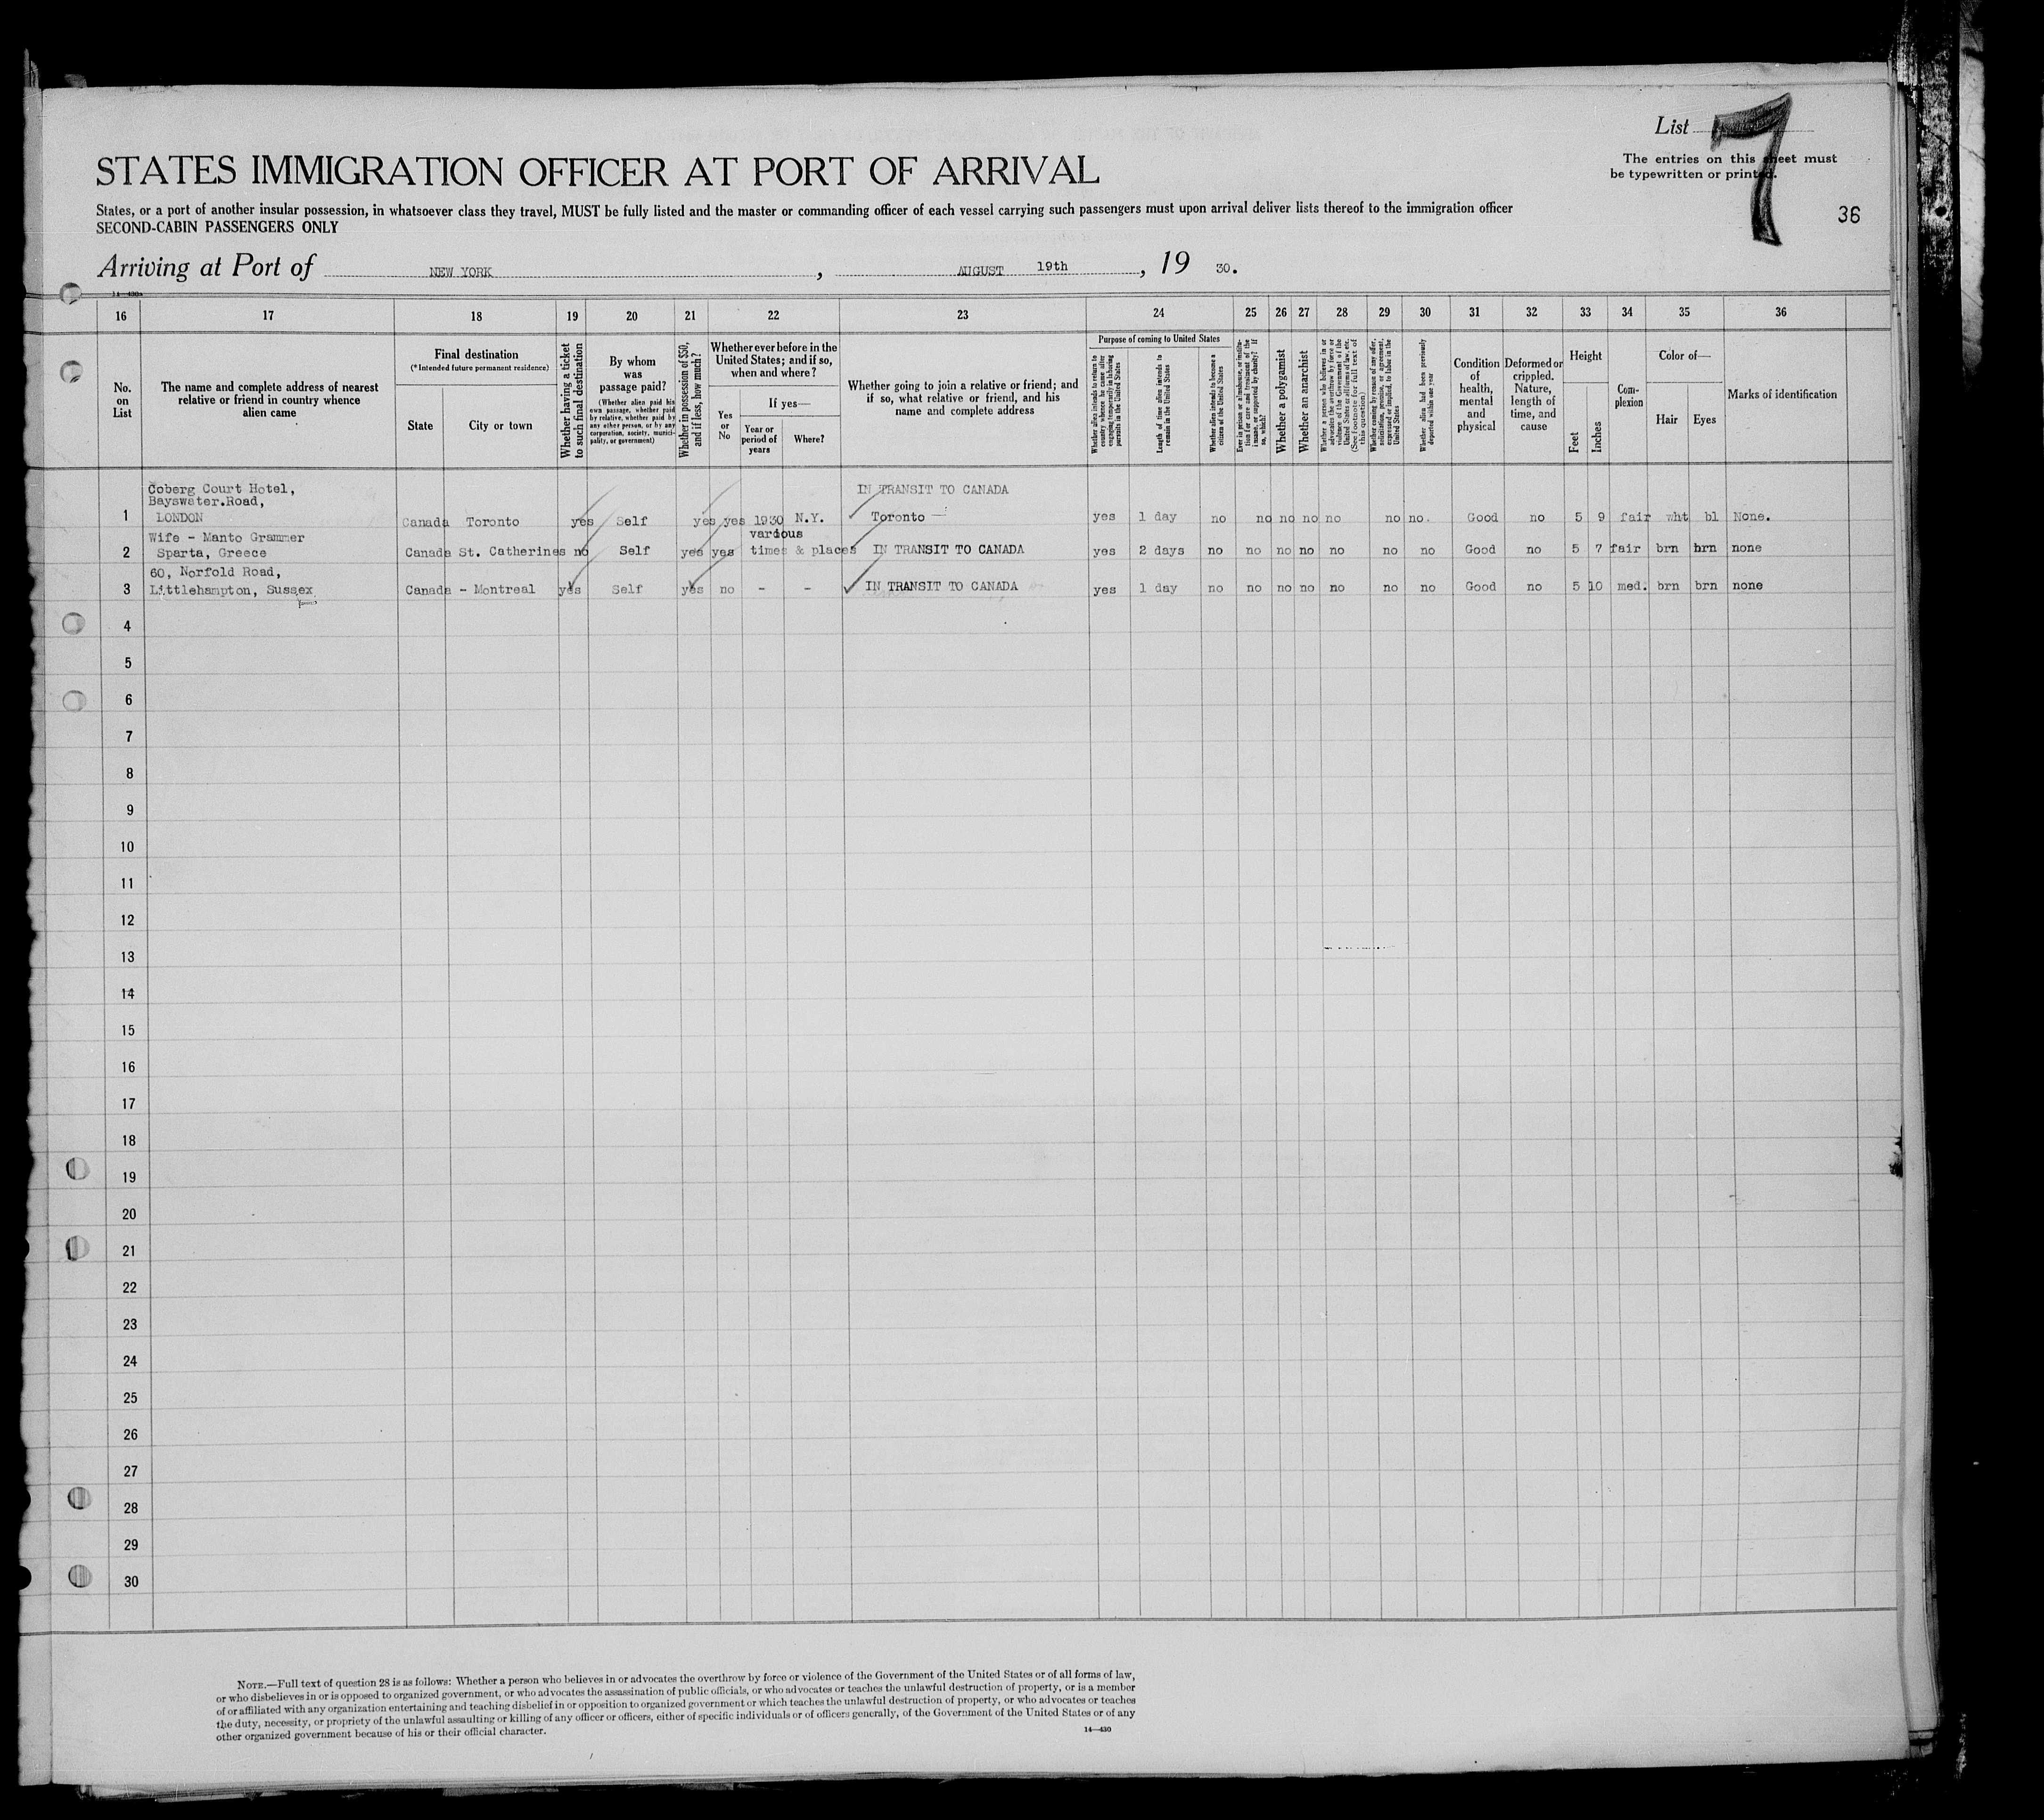 List 7
The entries on this sheet must
be typewritten or printed.
36
STATES IMMIGRATION OFFICER AT PORT OF ARRIVAL
States, or a port of another insular possession, in whatsoever class they travel, MUST be fully listed and the master or commanding officer of each vessel carrying such passengers must upon arrival deliver lists thereof to the immigration officer
SECOND-CABIN PASSENGERS ONLY
Arriving at Port of NEW YORK, AUGUST 19th, 19 30.
14—430a
16 17 18 19 20 21 22 23 24 25 26 27 28 29 30 31 32 33 34 35 36
No.
on
List
The name and complete address of nearest
relative or friend in country whence
alien came
Final destination
(*Intended future permanent residence)
State
City or town
Whether having a ticket
to such final destination
By whom
was
passage paid?
(Whether alien paid his
own passage, whether paid
by relative, whether paid by
any other person, or by any
corporation, society, munici-
pality, or government)
Whether in possession of $50,
and if less, how much?
Whether ever before in the
United States; and if so,
when and where?
Yes
or
No
If yes—
Year or
period of
years
Where?
Whether going to join a relative or friend; and
if so, what relative or friend, and his
name and complete address
Purpose of coming to United States
Whether alien intends to return to
country whence he came after
engaging temporarily in laboring
pursuits in the United States
Length of time alien intends to
remain in the United States
Whether alien intends to become a
citizen of the United States
Ever in prison or almshouse, or institu-
tion for care and treatment of the
insane, or supported by charity? If
so, which?
Whether a polygamist
Whether an anarchist
Whether a person who believes in or
advocates the overthrow by force or
violence of the Government of the
United States or all forms of law, etc.
(See footnote for full text of
this question)
Whether coming by reason of any offer,
solicitation, promise, or agreement,
expressed or implied, to labor in the
United States
Whether alien had been previously
deported within one year
Condition
of
health,
mental
and
physical
Deformed or
crippled.
Nature,
length of
time, and
cause
Height
Feet
Inches
Com-
plexion
Color of—
Hair
Eyes
Marks of identification
Coberg Court Hotel, IN TRANSIT TO CANADA
Bayswater.Road,
1 LONDON Canada Toronto yes Self yes yes 1930 N.Y. Toronto — yes 1 day no no no no no no no. Good no 5 9 fair wht bl None.
Wife - Manto Grammer various
2 Sparta, Greece Canada St. Catherines no Self yes yes times & places IN TRANSIT TO CANADA yes 2 days no no no no no no no Good no 5 7 fair brn brn none
60, Norfold Road,
3 Littlehampton, Sussex Canada - Montreal yes Self yes no - - IN TRANSIT TO CANADA yes 1 day no no no no no no no Good no 5 10 med. brn brn none
4
5
6
7
8
9
10
11
12
13
14
15
16
17
18
19
20
21
22
23
24
25
26
27
28
29
30
NOTE.—Full text of question 28 is as follows: Whether a person who believes in or advocates the overthrow by force or violence of the Government of the United States or of all forms of law,
or who disbelieves in or is opposed to organized government, or who advocates the assassination of public officials, or who advocates or teaches the unlawful destruction of property, or is a member
of or affiliated with any organization entertaining and teaching disbelief in or opposition to organized government or which teaches the unlawful destruction of property, or who advocates or teaches
the duty, necessity, or propriety of the unlawful assaulting or killing of any officer or officers, either of specific individuals or of officers generally, of the Government of the United States or of any
other organized government because of his or their official character.
14—430